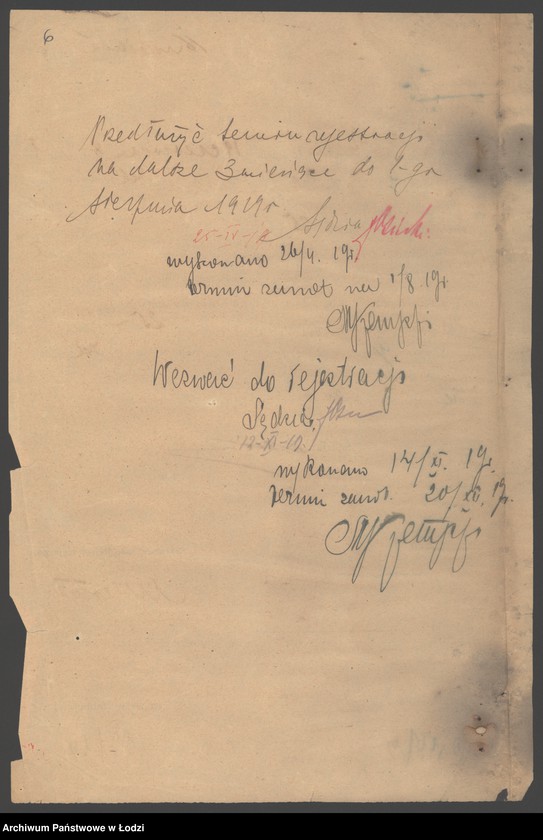 6
Przedłużyć termin rejestracji
na dalsze 3 miesiące do 1-go
sierpnia 1919 r
Sędzia
25-IV-19
wykonano 26/4. 19 r.
termin zanot na 1/8 19 r
Wezwać do rejestracji
Sędzia
12-XI-19.
wykonano 14/XI. 19 r.
termin zanot. 20/XII. 19 r.
Archiwum Państwowe w Łodzi